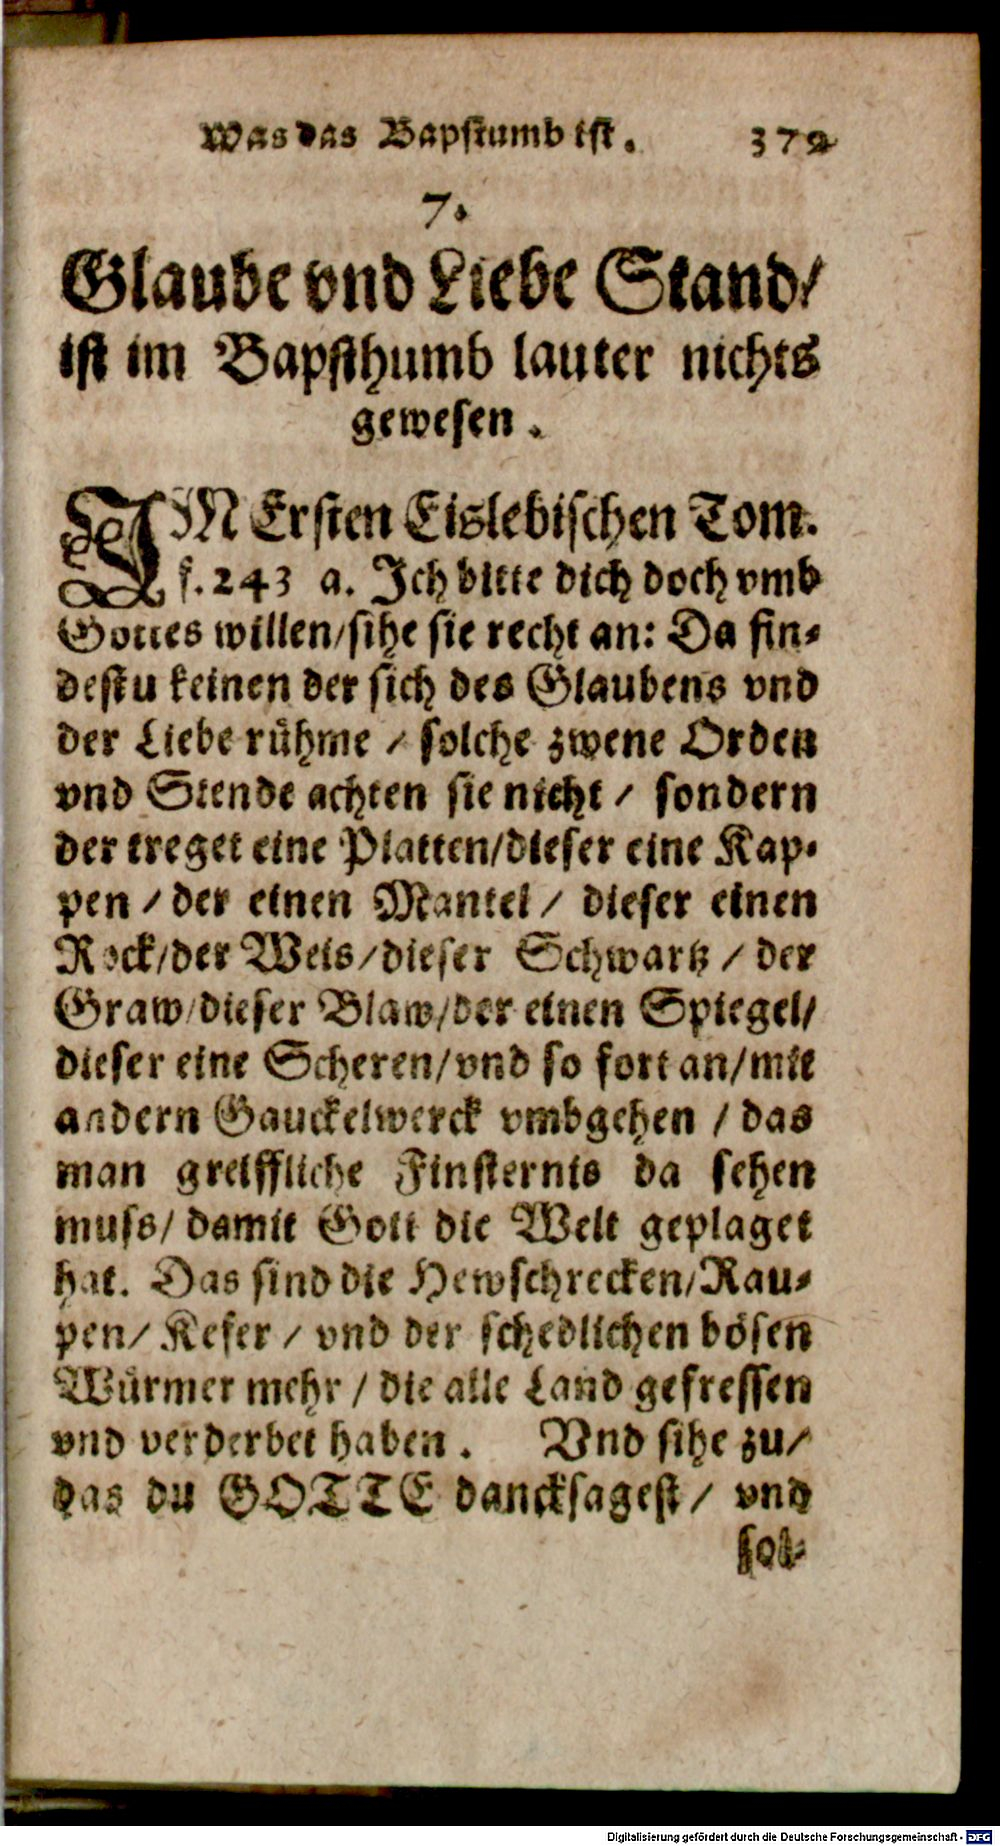 Was das Bapstumb ist. 372
7.
Glaube vnd Liebe Stand/
ist im Bapsthumb lauter nichts
gewesen.
IM Ersten Eislebischen Tom.
f. 243 a. Ich bitte dich doch vmb
Gottes willen/sihe sie recht an: Da fin-
destu keinen der sich des Glaubens vnd
der Liebe rühme / solche zwene Orden
vnd Stende achten sie nicht / sondern
der treget eine Platten/dieser eine Kap-
pen / der einen Mantel / dieser einen
Rock/der Weis/dieser Schwartz / der
Graw/dieser Blaw/der einen Spiegel/
dieser eine Scheren/vnd so fort an/mit
andern Gauckelwerck vmbgehen / das
man greiffliche Finsternis da sehen
muss/ damit Gott die Welt geplaget
hat. Das sind die Hewschrecken/Rau-
pen/ Kefer / vnd der schedlichen bösen
Würmer mehr / die alle Land gefressen
vnd verderbet haben. Vnd sihe zu/
das du GOTTE dancksagest / vnd
sol-
Digitalisierung gefördert durch die Deutsche Forschungsgemeinschaft - DFG